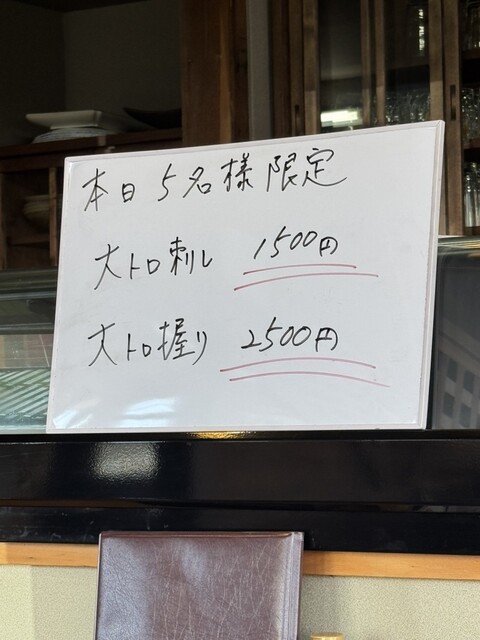 本日5名様限定
大トロ刺し 1500円
大トロ握り 2500円